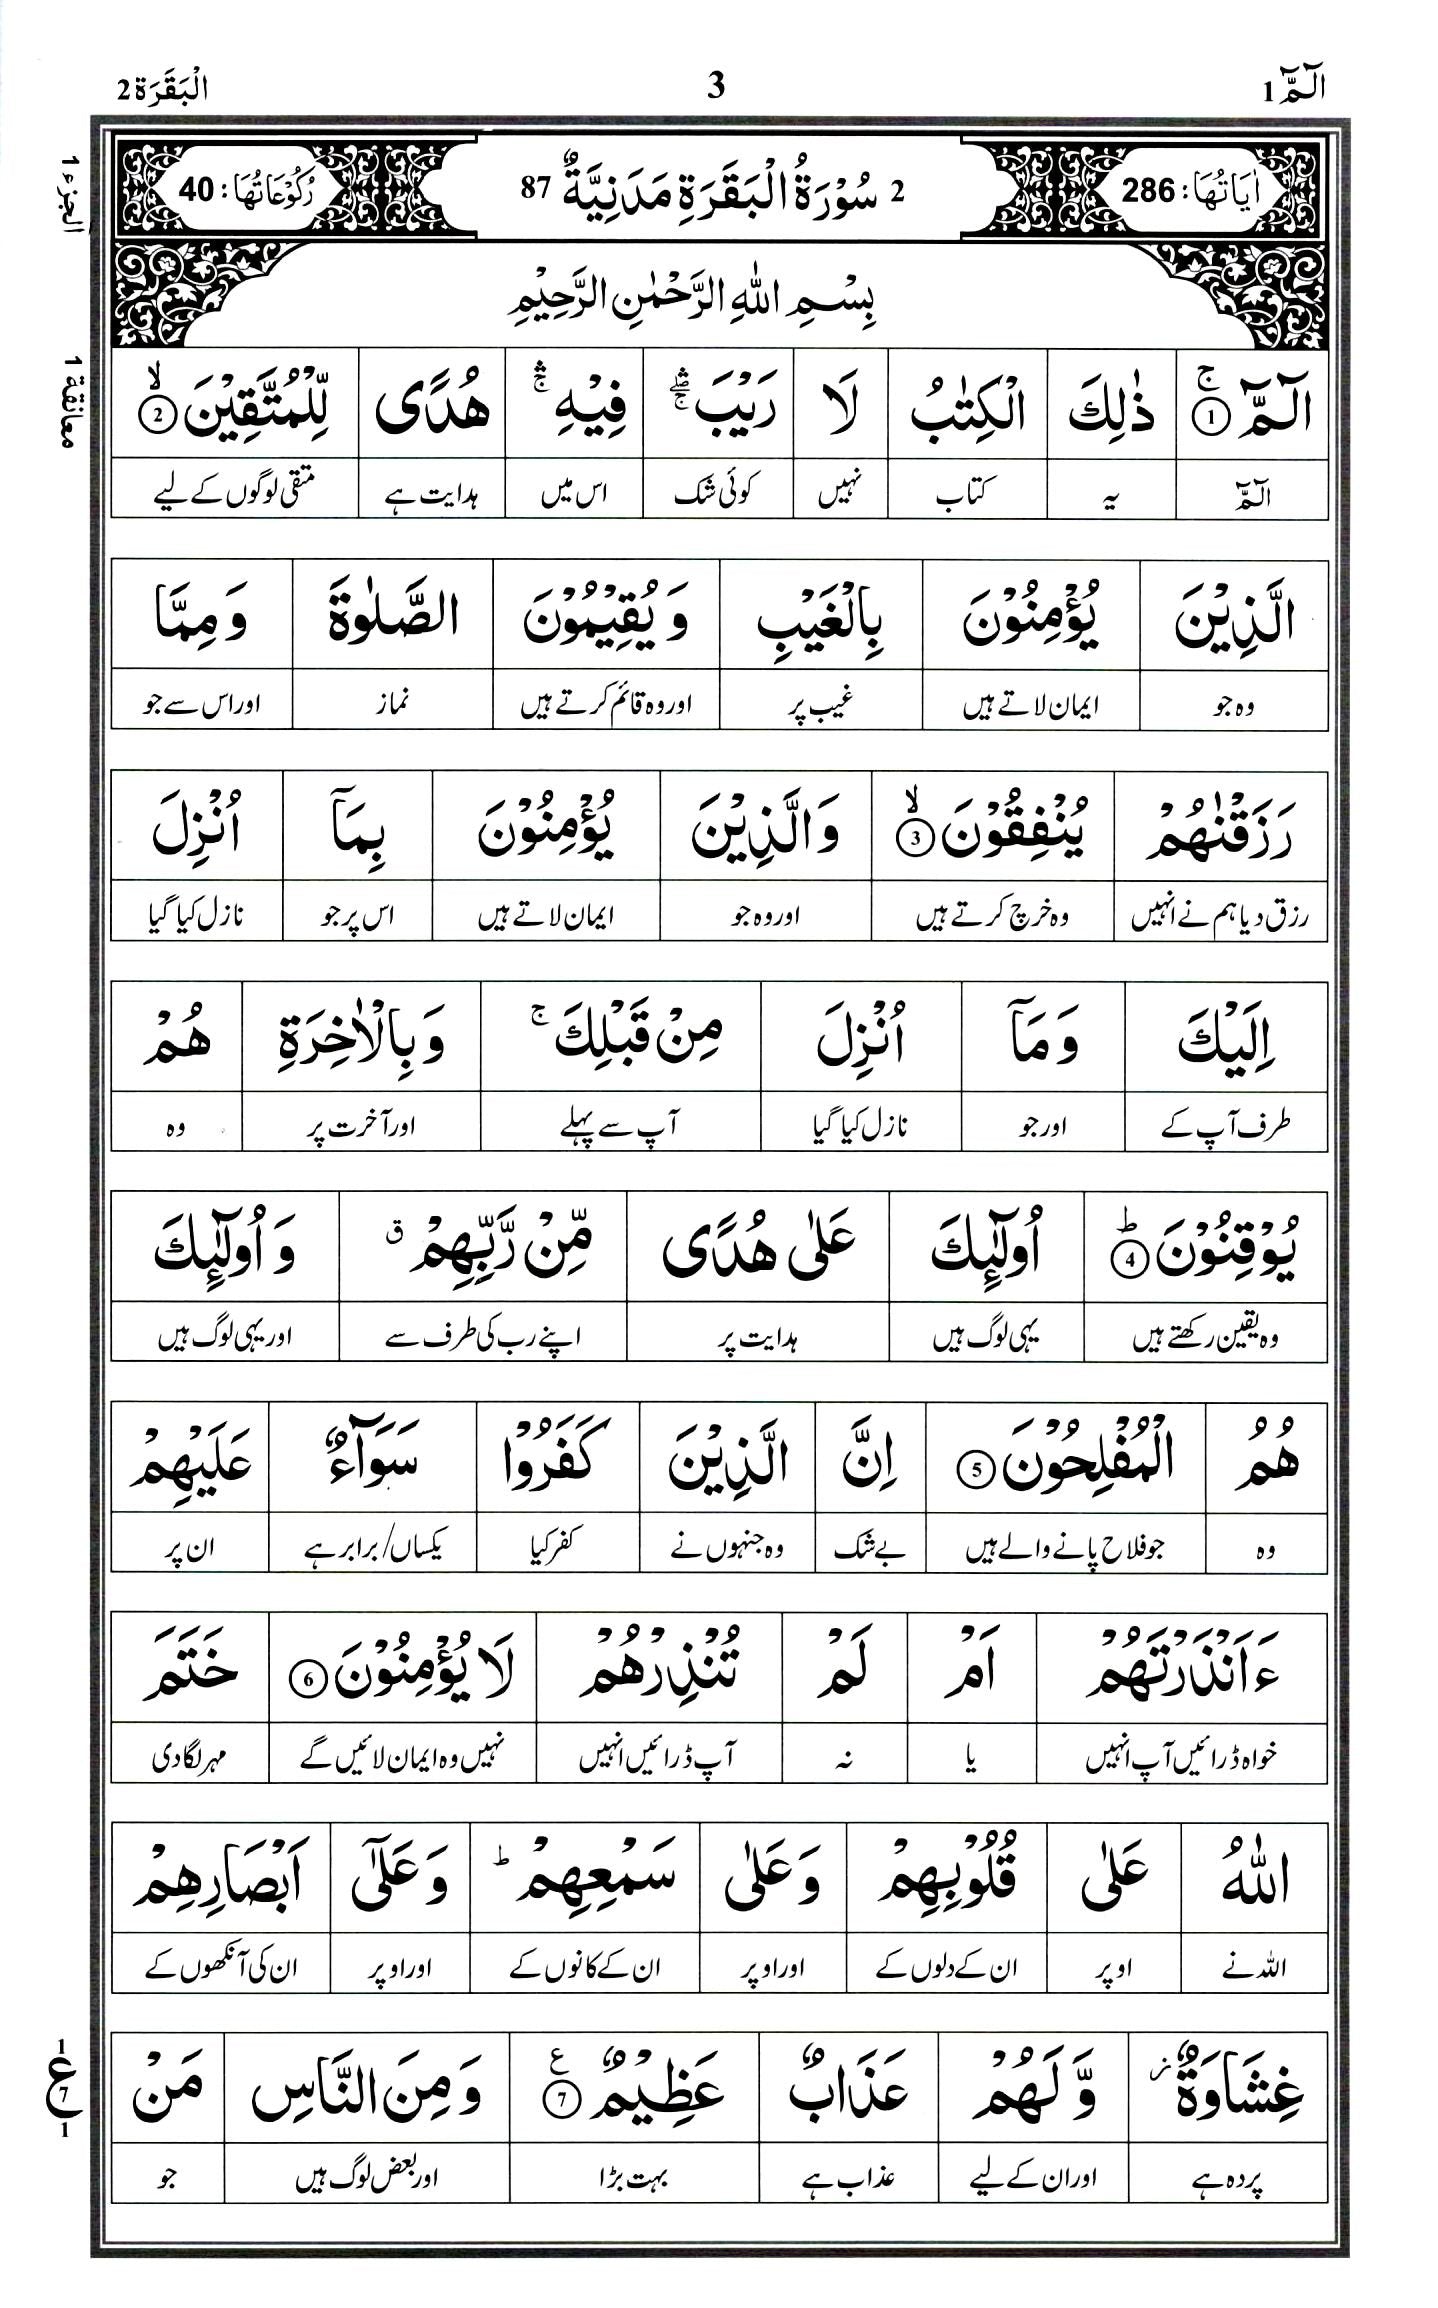 الٓمّٓ 1 3 الْبَقَرَة 2
اٰيَاتُهَا: 286 2 سُوْرَةُ الْبَقَرَةِ مَدَنِيَّةٌ 87 رُكُوْعَاتُهَا: 40
الجزء ١
بِسْمِ اللّٰهِ الرَّحْمٰنِ الرَّحِيْمِ
معانقة ١
الٓمّٓ ۚ 1 ذٰلِكَ الْكِتٰبُ لَا رَيْبَ ۛۖۚ فِيْهِ ۛۚ هُدًى لِّلْمُتَّقِيْنَ ۙ 2
الٓمّٓ یہ کتاب نہیں کوئی شک اس میں ہدایت ہے متقی لوگوں کے لیے
الَّذِيْنَ يُؤْمِنُوْنَ بِالْغَيْبِ وَيُقِيْمُوْنَ الصَّلٰوةَ وَمِمَّا
وہ جو ایمان لاتے ہیں غیب پر اور وہ قائم کرتے ہیں نماز اور اس سے جو
رَزَقْنٰهُمْ يُنْفِقُوْنَ ۙ 3 وَالَّذِيْنَ يُؤْمِنُوْنَ بِمَآ اُنْزِلَ
رزق دیا ہم نے انہیں وہ خرچ کرتے ہیں اور وہ جو ایمان لاتے ہیں اس پر جو نازل کیا گیا
اِلَيْكَ وَمَآ اُنْزِلَ مِنْ قَبْلِكَ ۚ وَبِالْاٰخِرَةِ هُمْ
طرف آپ کے اور جو نازل کیا گیا آپ سے پہلے اور آخرت پر وہ
يُوْقِنُوْنَ ؕ 4 اُولٰٓئِكَ عَلٰى هُدًى مِّنْ رَّبِّهِمْ ق وَاُولٰٓئِكَ
وہ یقین رکھتے ہیں یہی لوگ ہیں ہدایت پر اپنے رب کی طرف سے اور یہی لوگ ہیں
هُمُ الْمُفْلِحُوْنَ 5 اِنَّ الَّذِيْنَ كَفَرُوْا سَوَآءٌ عَلَيْهِمْ
وہ جو فلاح پانے والے ہیں بے شک وہ جنہوں نے کفر کیا یکساں/برابر ہے ان پر
ءَاَنْذَرْتَهُمْ اَمْ لَمْ تُنْذِرْهُمْ لَا يُؤْمِنُوْنَ 6 خَتَمَ
خواہ ڈرائیں آپ انہیں یا نہ آپ ڈرائیں انہیں نہیں وہ ایمان لائیں گے مہر لگا دی
اللّٰهُ عَلٰى قُلُوْبِهِمْ وَعَلٰى سَمْعِهِمْ ؕ وَعَلٰٓى اَبْصَارِهِمْ
اللہ نے اوپر ان کے دلوں کے اور اوپر ان کے کانوں کے اور اوپر ان کی آنکھوں کے
غِشَاوَةٌ ز وَّلَهُمْ عَذَابٌ عَظِيْمٌ ع 7 وَمِنَ النَّاسِ مَنْ
پردہ ہے اور ان کے لیے عذاب ہے بہت بڑا اور بعض لوگ ہیں جو
١ ع ٧ ١